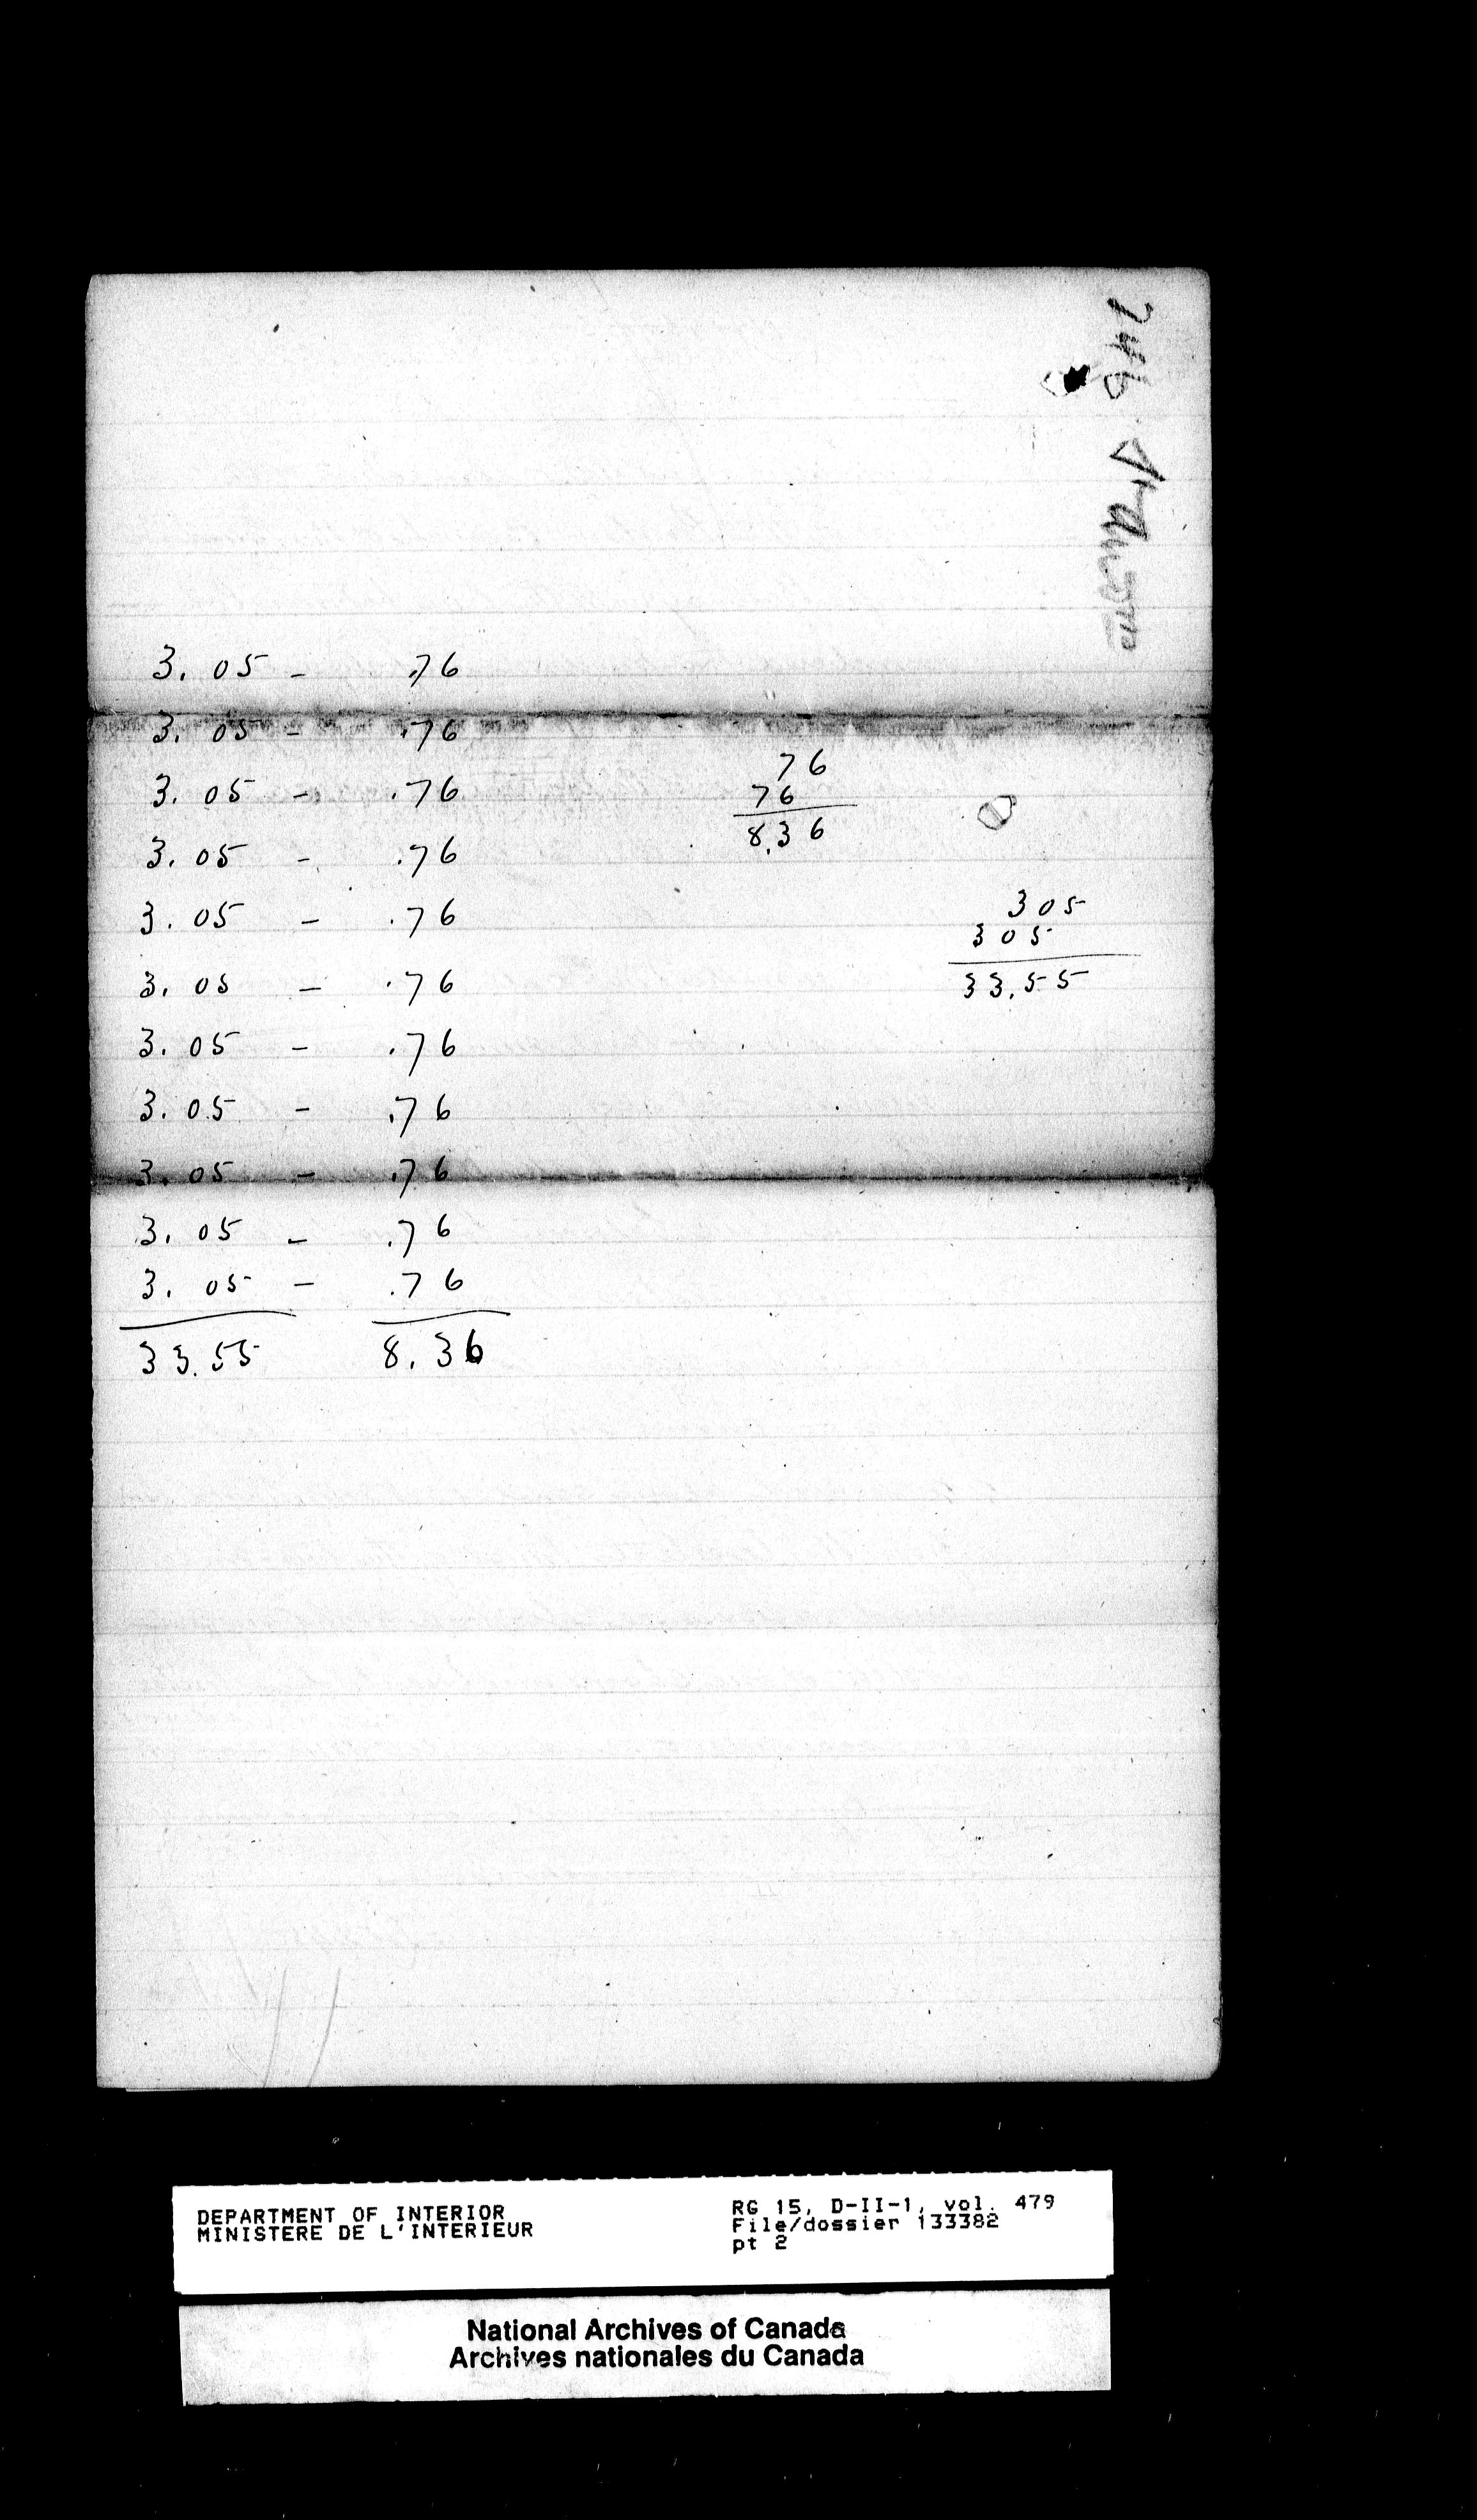 746
3.05 - .76
3.05 - .76
3.05 - .76
3.05 - .76
3.05 - .76
3.05 - .76
3.05 - .76
3.05 - .76
3.05 - .76
3.05 - .76
3.05 - .76
33.55 8.36
76
76
8.36
305
305
33.55
DEPARTMENT OF INTERIOR
MINISTERE DE L'INTERIEUR
RG 15, D-II-1, vol. 479
File/dossier 133382
pt 2
National Archives of Canada
Archives nationales du Canada